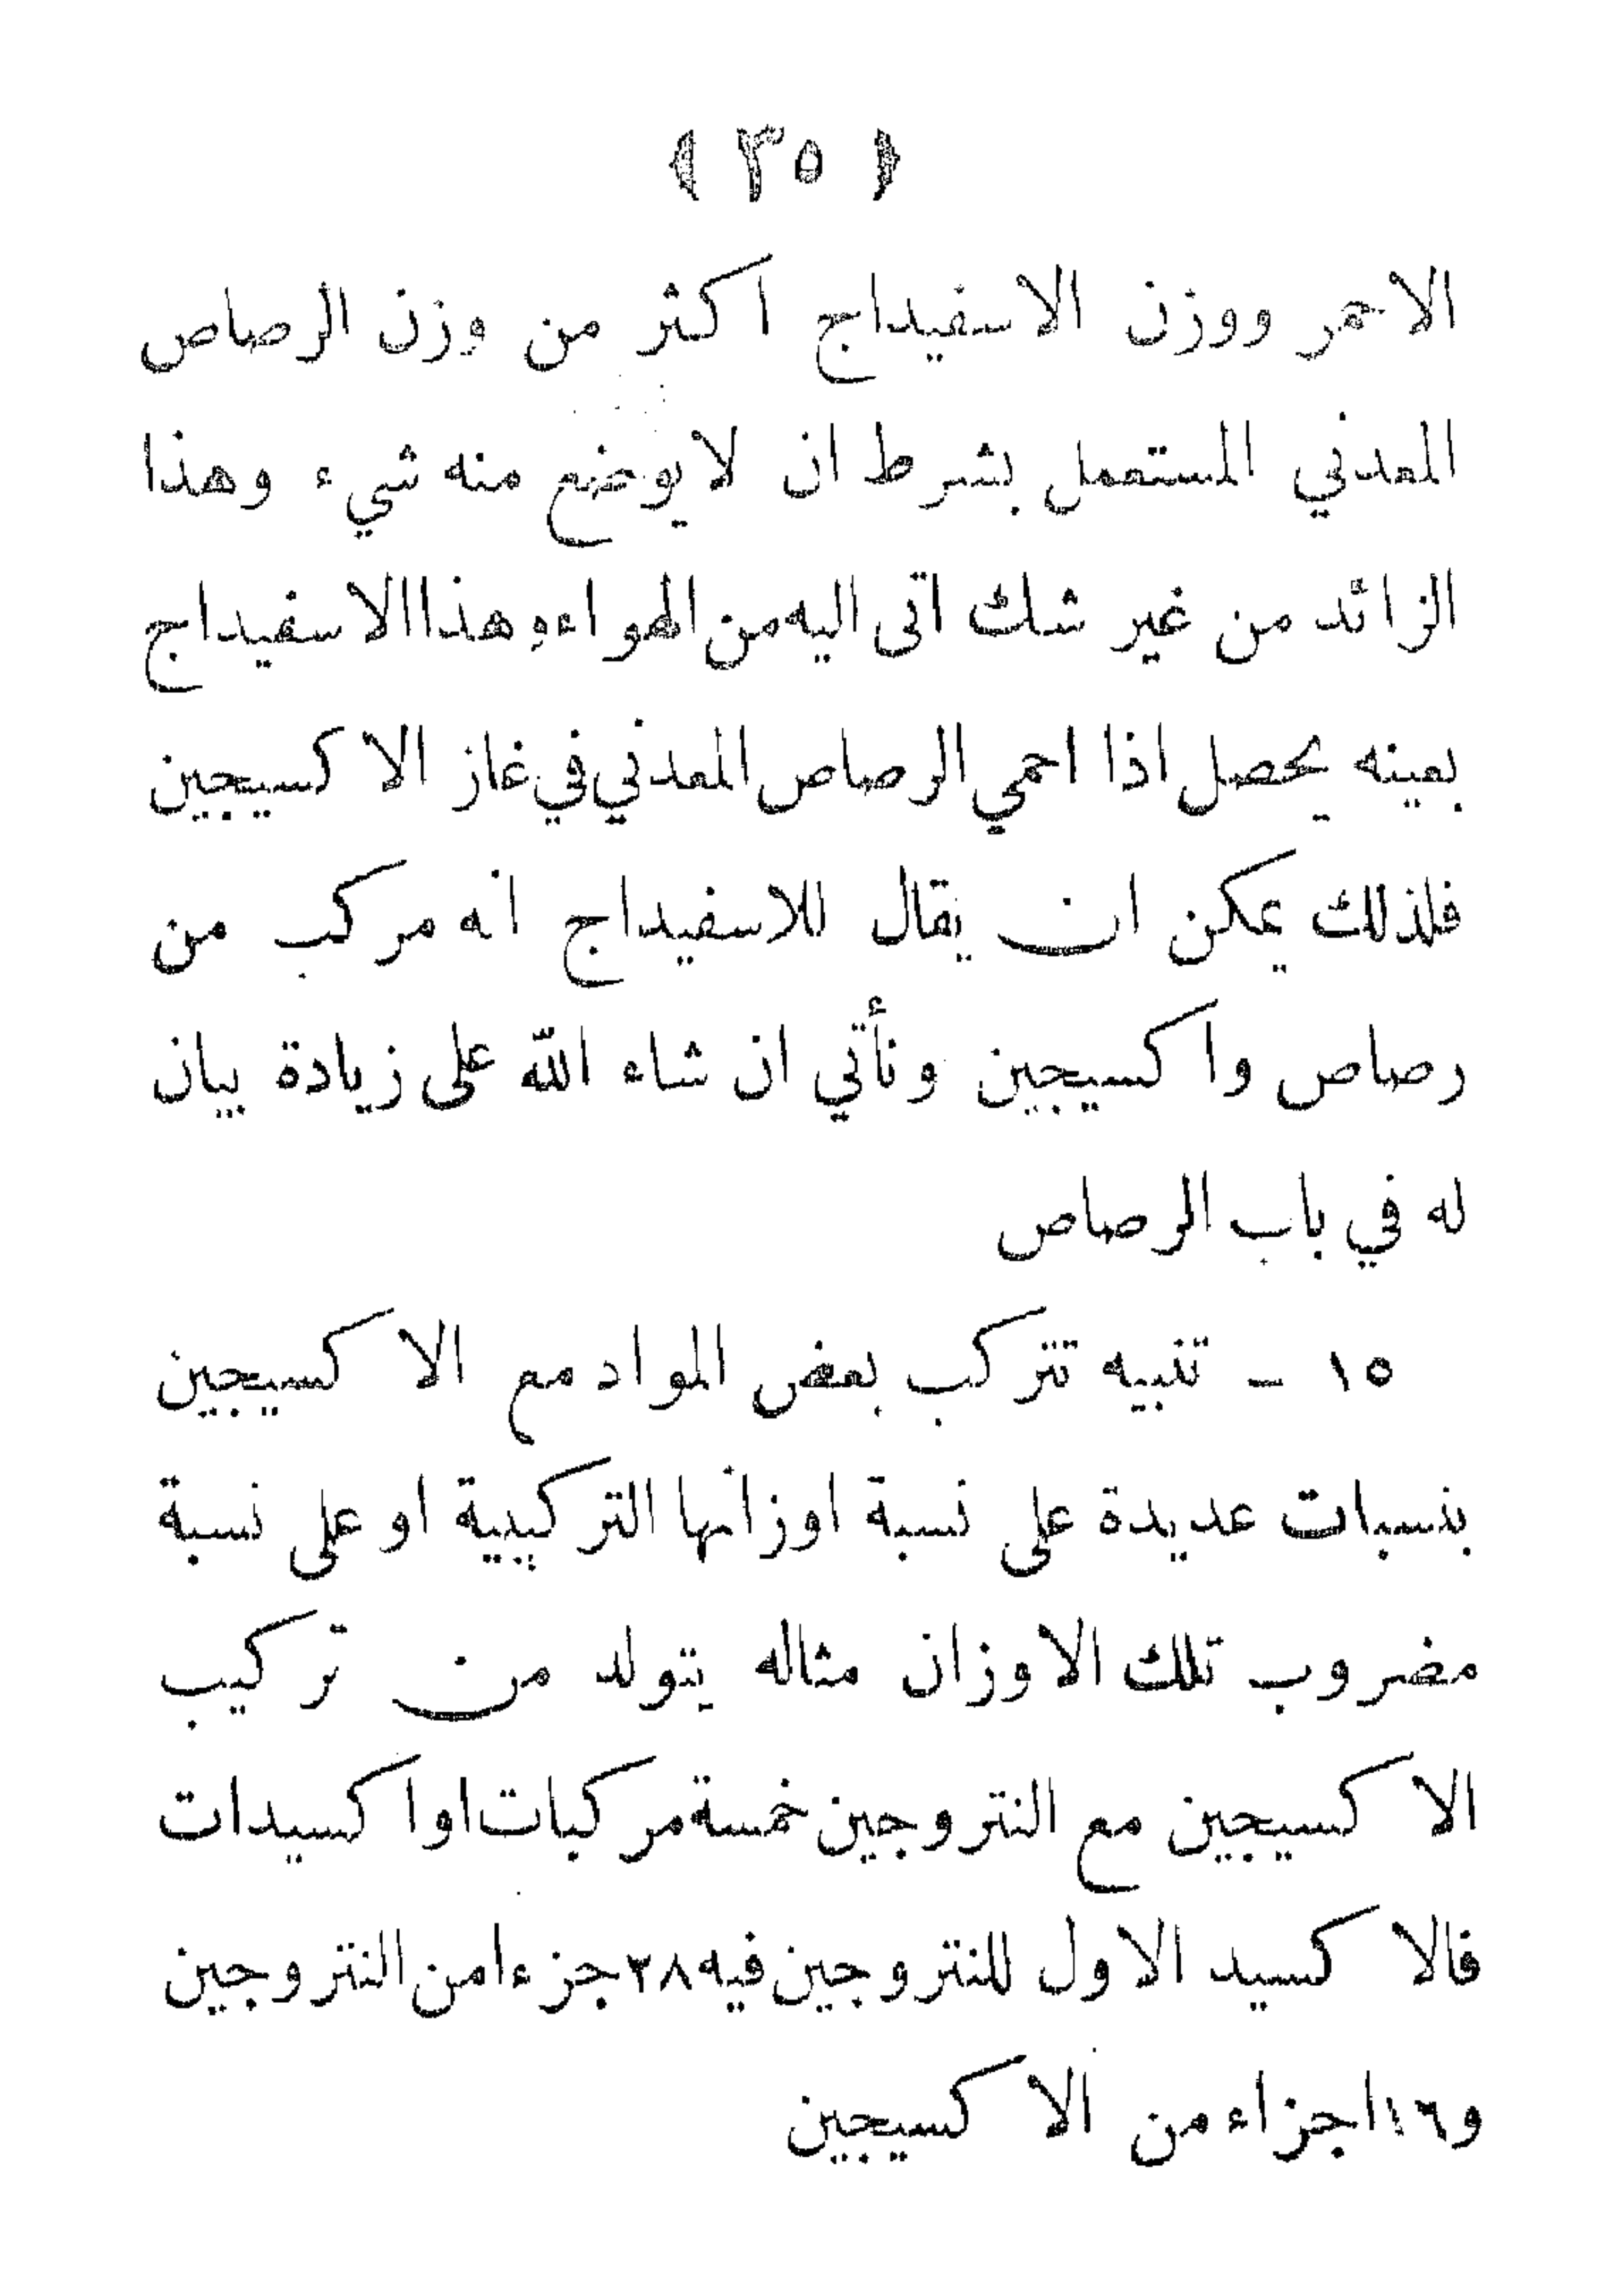 ﴿ ٣٥ ﴾
الاحمر ووزن الاسفيداج اكثر من وزن الرصاص
المعدني المستعمل بشرط ان لايوضع منه شيء وهذا
الزائد من غير شك اتى اليه من الهواء وهذا الاسفيداج
بعينه يحصل اذا احمي الرصاص المعدني في غاز الاكسيجين
فلذلك يمكن ان يقال للاسفيداج انه مركب من
رصاص واكسيجين ونأتي ان شاء الله على زيادة بيان
له في باب الرصاص
١٥ - تنبيه تتركب بعض المواد مع الاكسيجين
بنسبات عديدة على نسبة اوزانها التركيبية او على نسبة
مضروب تلك الاوزان مثاله يتولد من تركيب
الاكسيجين مع النتروجين خمسة مركبات او اكسيدات
فالاكسيد الاول للنتروجين فيه ٢٨ جزءا من النتروجين
و١٦ اجزاء من الاكسيجين